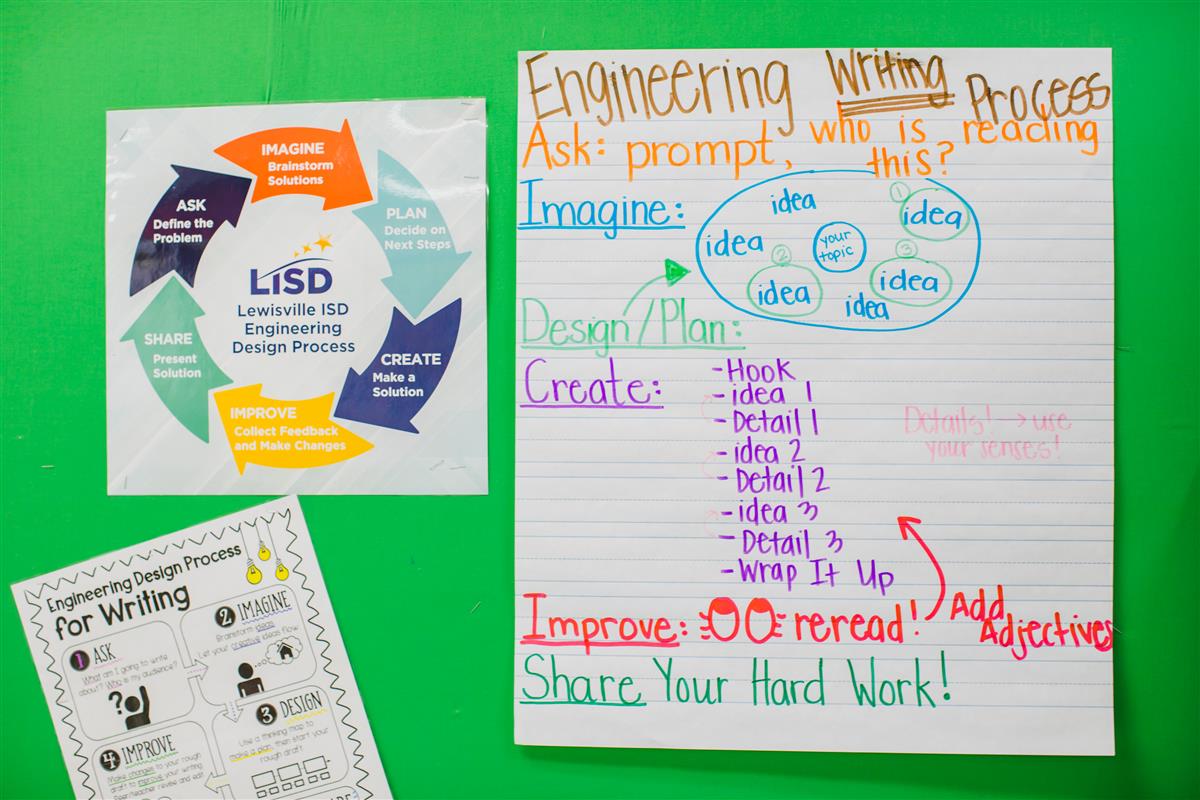 IMAGINE
Brainstorm
Solutions
PLAN
Decide on
Next Steps
CREATE
Make a
Solution
IMPROVE
Collect Feedback
and Make Changes
SHARE
Present
Solution
ASK
Define the
Problem
LISD
Lewisville ISD
Engineering
Design Process
Engineering Design Process
for Writing
1 ASK
What am I going to write
about? Who is my audience?
2 IMAGINE
Brainstorm ideas.
Let your creative ideas flow
3 DESIGN
Use a thinking map to
make a plan, then start your
rough draft.
4 IMPROVE
Make changes to your rough
draft to improve your writing.
Peer/teacher review and edit
Engineering Writing Process
Ask: prompt, who is reading
this?
Imagine:
idea
1
idea
idea
your
topic
2
idea
3
idea
idea
Design/Plan:
Create:
-Hook
-idea 1
-Detail 1
-idea 2
-Detail 2
-idea 3
-Detail 3
-Wrap It Up
Details! → use
your senses!
Improve: reread!
Add
Adjectives
Share Your Hard Work!